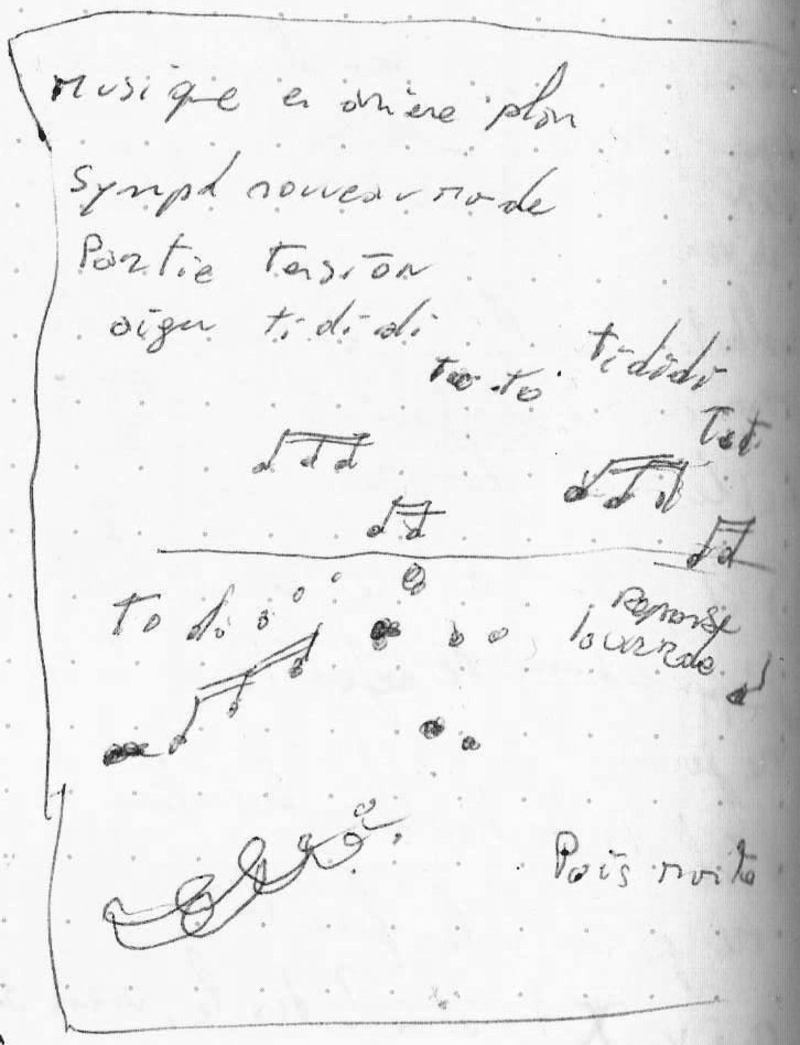 musique en arrière plan
Symph nouveau monde
Partie tension
aigu ti di di
to to
ti di di
Tot
To di
reponse
lourde
Puis suite